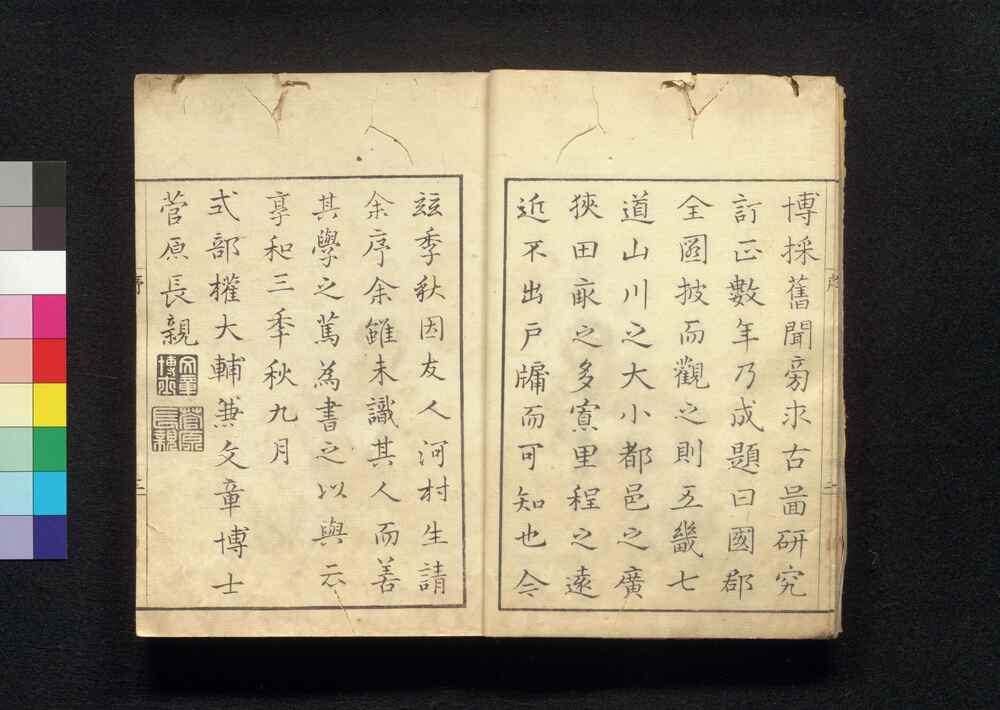 博採舊聞旁求古啚研究
訂正數年乃成題曰國郡
全圖披而觀之則五畿七
道山川之大小都邑之廣
狹田畝之多寡里程之遠
近不出戸牖而可知也今
玆季秋因友人河村生請
余序余雖未識其人而善
其學之篤為書之以與云
享和三季秋九月
式部權大輔兼文章博士
菅原長親
文章
博士
菅原
長親
序
二
序
三